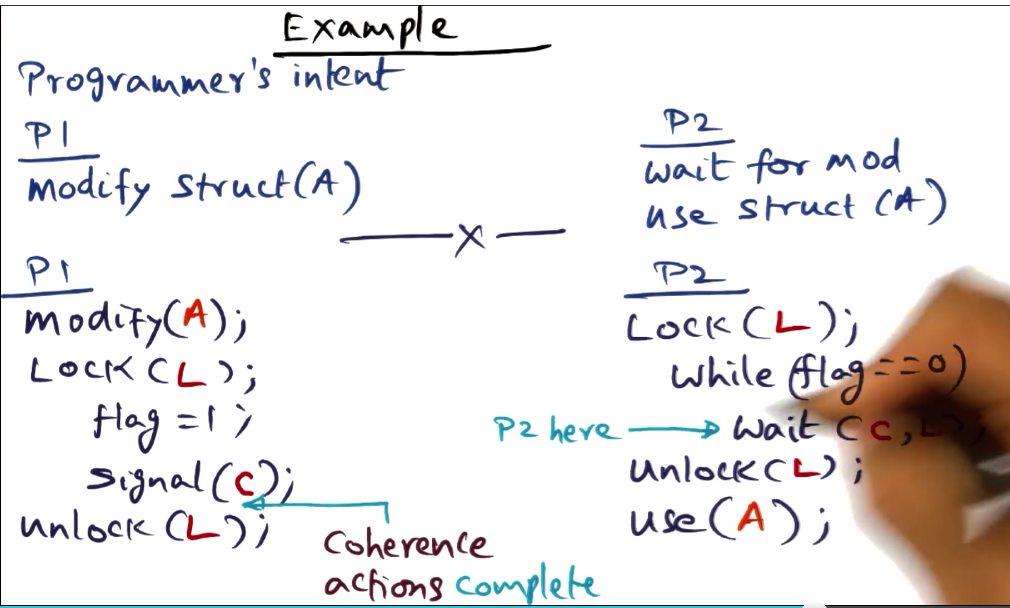 Example
Programmer's intent
P1
modify struct(A)
P2
wait for mod
use struct (A)
x
P1
modify(A);
Lock (L);
flag = 1;
signal(c);
unlock (L);
Coherence
actions complete
P2
Lock (L);
while (flag==0)
P2 here → wait (c, L);
unlock(L);
use(A);